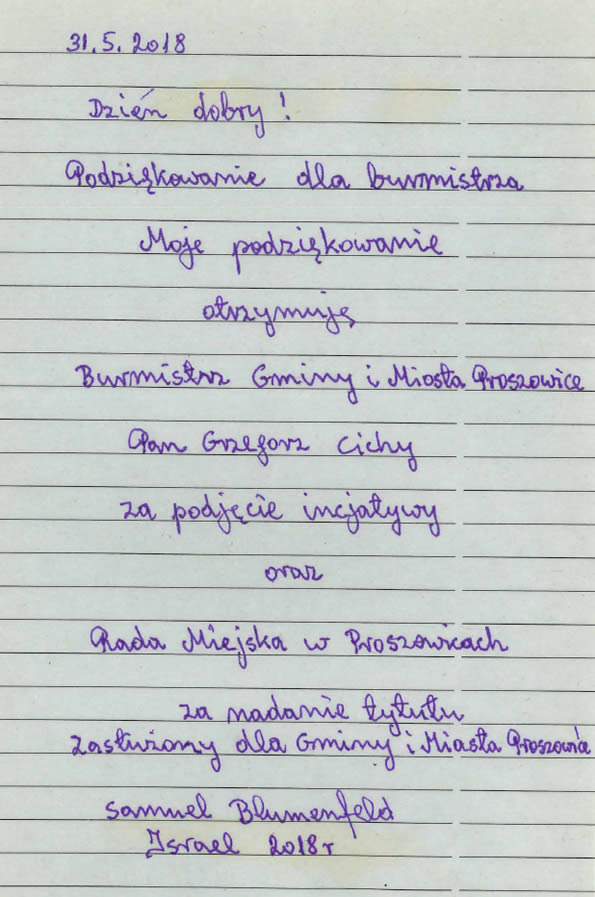 31.5.2018
Dzień dobry!
Podziękowanie dla burmistrza
Moje podziękowanie
otrzymują
Burmistrz Gminy i Miasta Proszowice
Pan Grzegorz Cichy
za podjęcie incjatywy
oraz
Rada Miejska w Proszowicach
za nadanie tytułu
zasłużony dla Gminy i Miasta Proszowic
Samuel Blumenfeld
Israel 2018r